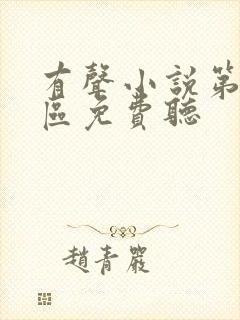 有聲小說第
區免費聽
趙青嚴